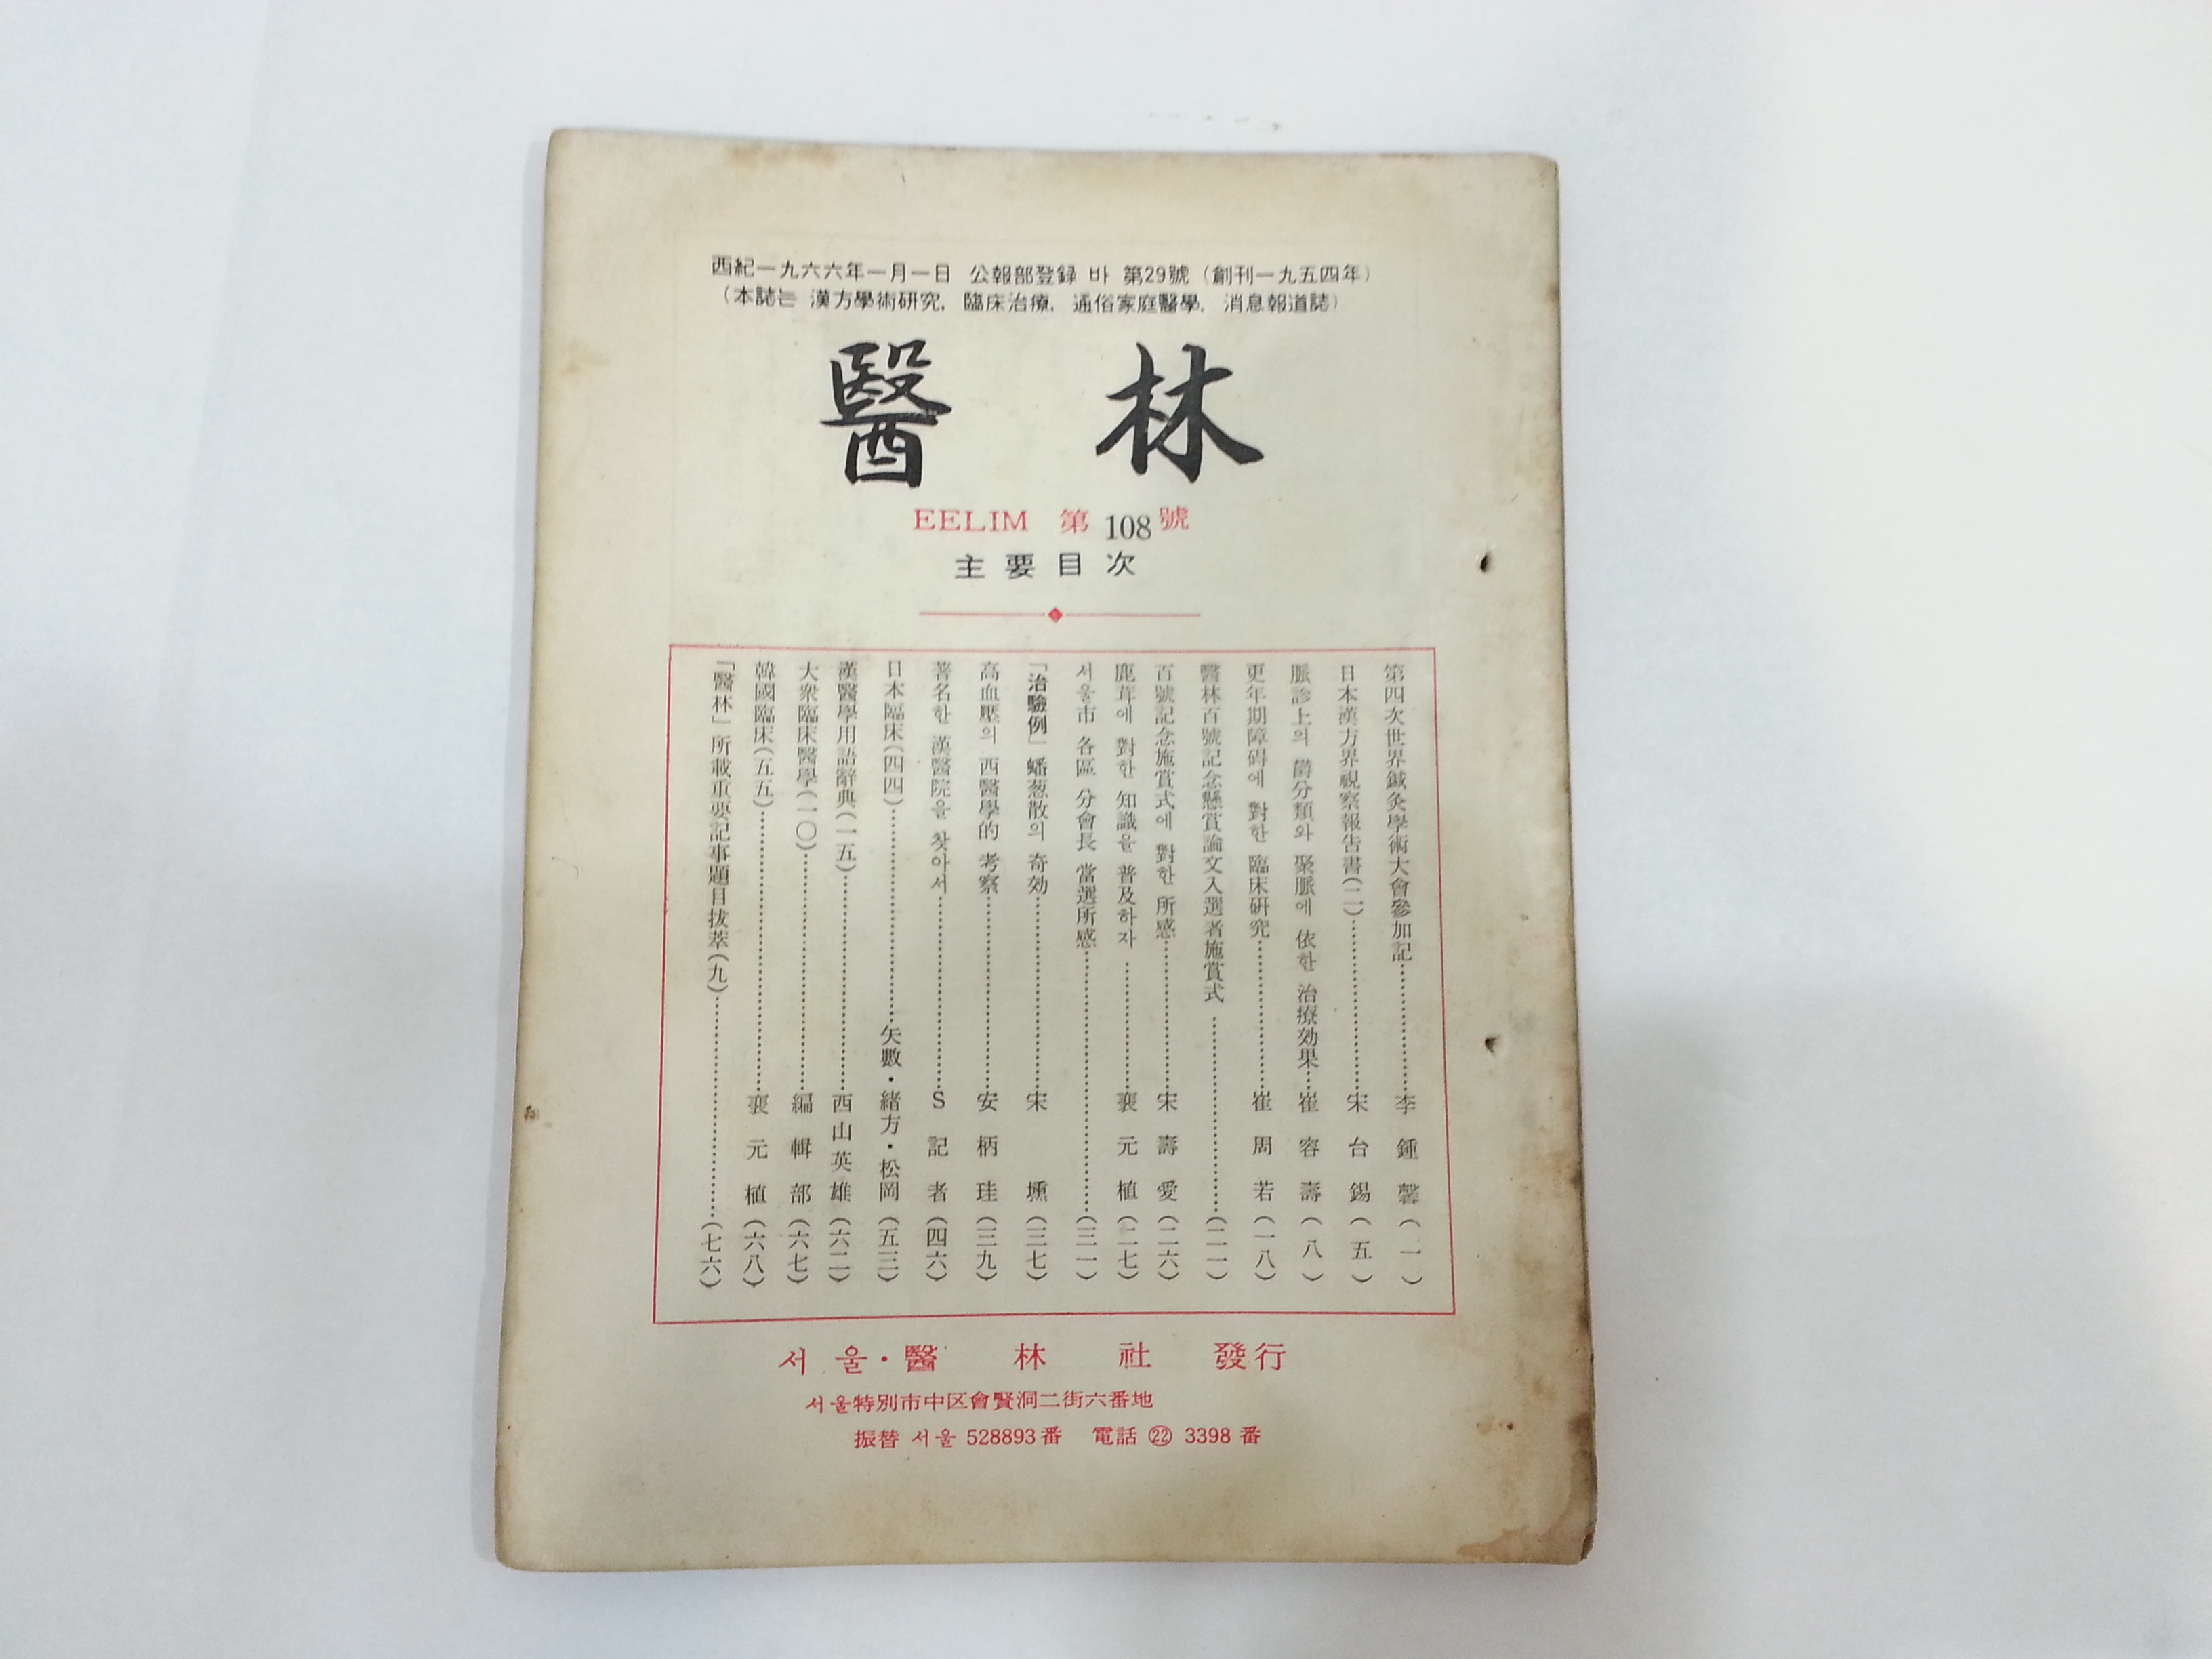 西紀一九六六年一月一日 公報部登録 바 第29號 (創刊一九五四年)
(本誌는 漢方學術研究, 臨床治療, 通俗家庭醫學, 消息報道誌)
醫 林
EELIM 第 108 號
主要目次
第四次世界鍼灸學術大會參加記……李鍾馨(一)
日本漢方界視察報告書(二)……宋台錫(五)
脈診上의 分類와 聚脈에 依한 治療効果……崔容壽(八)
更年期障碍에 對한 臨床研究……崔周若(一八)
醫林百號記念懸賞論文入選者施賞式……(二一)
百號記念施賞式에 對한 所感……宋壽愛(二六)
鹿茸에 對한 知識을 普及하자……裵元植(二七)
서울市 各區 分會長 當選所感……(三一)
「治驗例」蟠葱散의 奇効……宋壎(三七)
高血壓의 西醫學的 考察……安柄珪(三九)
著名한 漢醫院을 찾아서……S記者(四六)
日本臨床(四四)……矢數・緒方・松岡(五三)
漢醫學用語辭典(一五)……西山英雄(六二)
大衆臨床醫學(一〇)……編輯部(六七)
韓國臨床(五五)……裵元植(六八)
「醫林」所載重要記事題目拔萃(九)……(七六)
서울・醫林社 發行
서울特別市中区會賢洞二街六番地
振替 서울 528893番 電話 ㉒ 3398 番